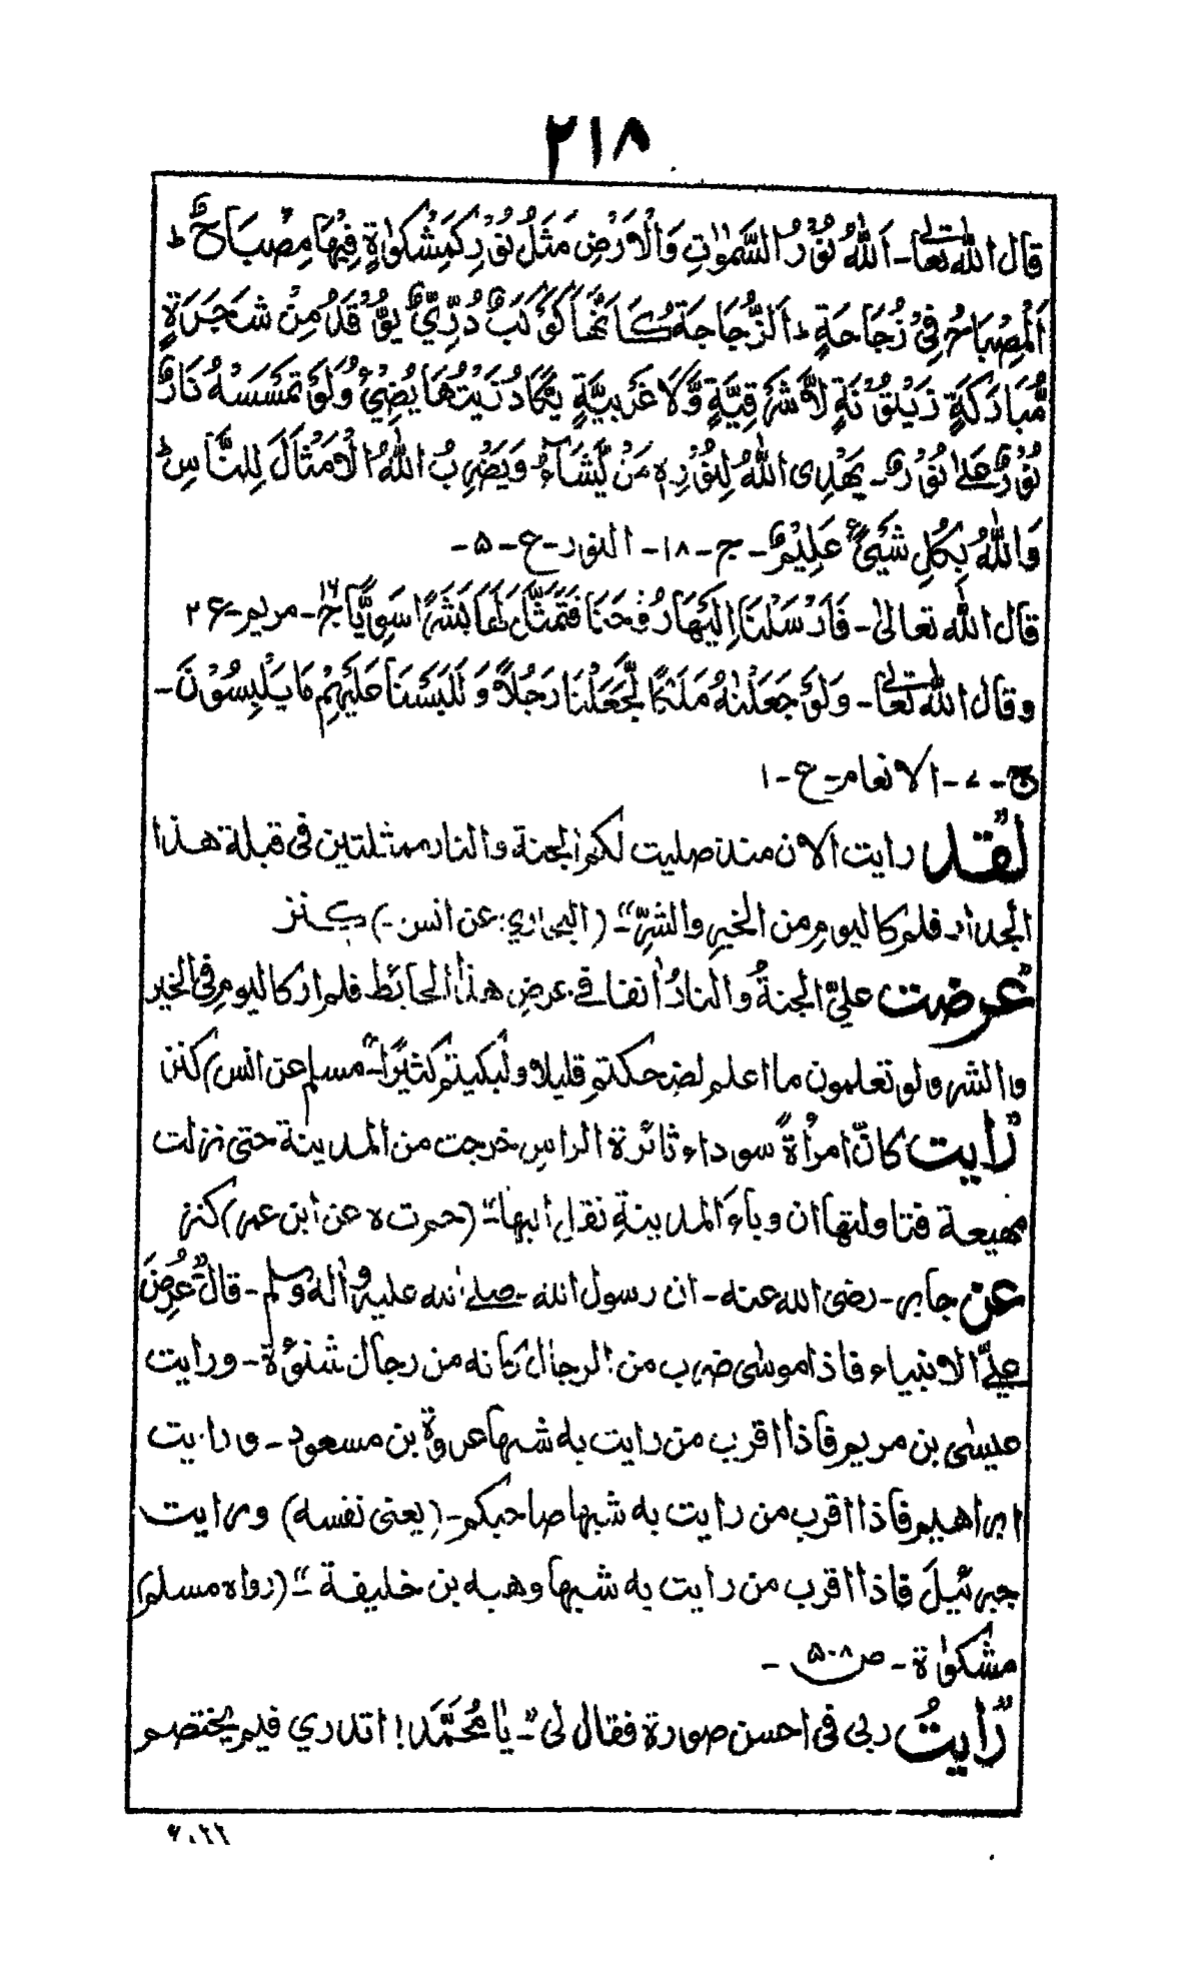 ٢١٨
قال الله تعالى - اَللهُ نُوْرُ السَّمٰوٰتِ وَالْاَرْضِ مَثَلُ نُوْرِهٖ كَمِشْكٰوةٍ فِيْهَا مِصْبَاحٌ ط
اَلْمِصْبَاحُ فِيْ زُجَاجَةٍ ط اَلزُّجَاجَةُ كَاَنَّهَا كَوْكَبٌ دُرِّيٌّ يُّوْقَدُ مِنْ شَجَرَةٍ
مُّبَارَكَةٍ زَيْتُوْنَةٍ لَّا شَرْقِيَّةٍ وَّلَا غَرْبِيَّةٍ يَّكَادُ زَيْتُهَا يُضِيْٓءُ وَلَوْ تَمْسَسْهُ نَارٌ
نُوْرٌ عَلٰى نُوْرٍ - يَهْدِى اللهُ لِنُوْرِهٖ مَنْ يَّشَآءُ وَيَضْرِبُ اللهُ الْاَمْثَالَ لِلنَّاسِ ط
وَاللهُ بِكُلِّ شَيْئٍ عَلِيْمٌ - ج - ١٨ - النور - ع - ۵ -
قال الله تعالىٰ - فَاَرْسَلْنَا اِلَيْهَا رُوْحَنَا فَتَمَثَّلَ لَهَا بَشَرًا سَوِيًّا ج ١٦ - مريم - ع ٢
وقال الله تعالى - وَلَوْ جَعَلْنٰهُ مَلَكًا لَّجَعَلْنَا رَجُلًا وَ لَلَبَسْنَا عَلَيْهِمْ مَا يَلْبِسُوْنَ -
ج - ٧ - الانعام - ع - ١
لقد رايت الان منذ صليت لكم الجنة والنار ممثلتين فى قبلة هذا
الجدار فلم كاليوم من الخير والشرِّ" - (البخاري: عن انس -) كنز
"عرضت عليّ الجنةُ والنارُ اٰنفا في عرض هذا الحائط فلم ار كاليوم فى الخير
والشر ولو تعلمون ما اعلم لضحكتم قليلا ولبكيتم كثيرًا" - مسلم عن انس) كنز
"رايت كانّ امرأةً سوداء ثائرة الراس خرجت من المدينة حتى نزلت
مهيعة فتاولتها ان وباءَ المدينةِ نقل اليها" - (حم ت ه عن ابن عمر) كنز
عن جابر - رضى الله عنه - ان رسول الله - صلى الله عليه واٰله وسلم - قال "عُرِضَ
عليَّ الانبياء فاذا موسٰى ضرب من الرجال كانه من رجال شنوءة - ورايت
عيسٰى بن مريم فاذا اقرب من رايت به شبها عروة بن مسعود - ورايت
ابراهيم فاذا اقرب من رايت به شبها صاحبكم - (يعنى نفسه) ورايت
جبرئيلَ فاذا اقرب من رايت به شبها وهبه بن خليفة" - (رواه مسلم)
مشكوٰة - ص ۵٠٨ -
"رايتُ ربى فى احسن صورة فقال لى" - يا مُحَمَّد! اتدري فيم يختصم